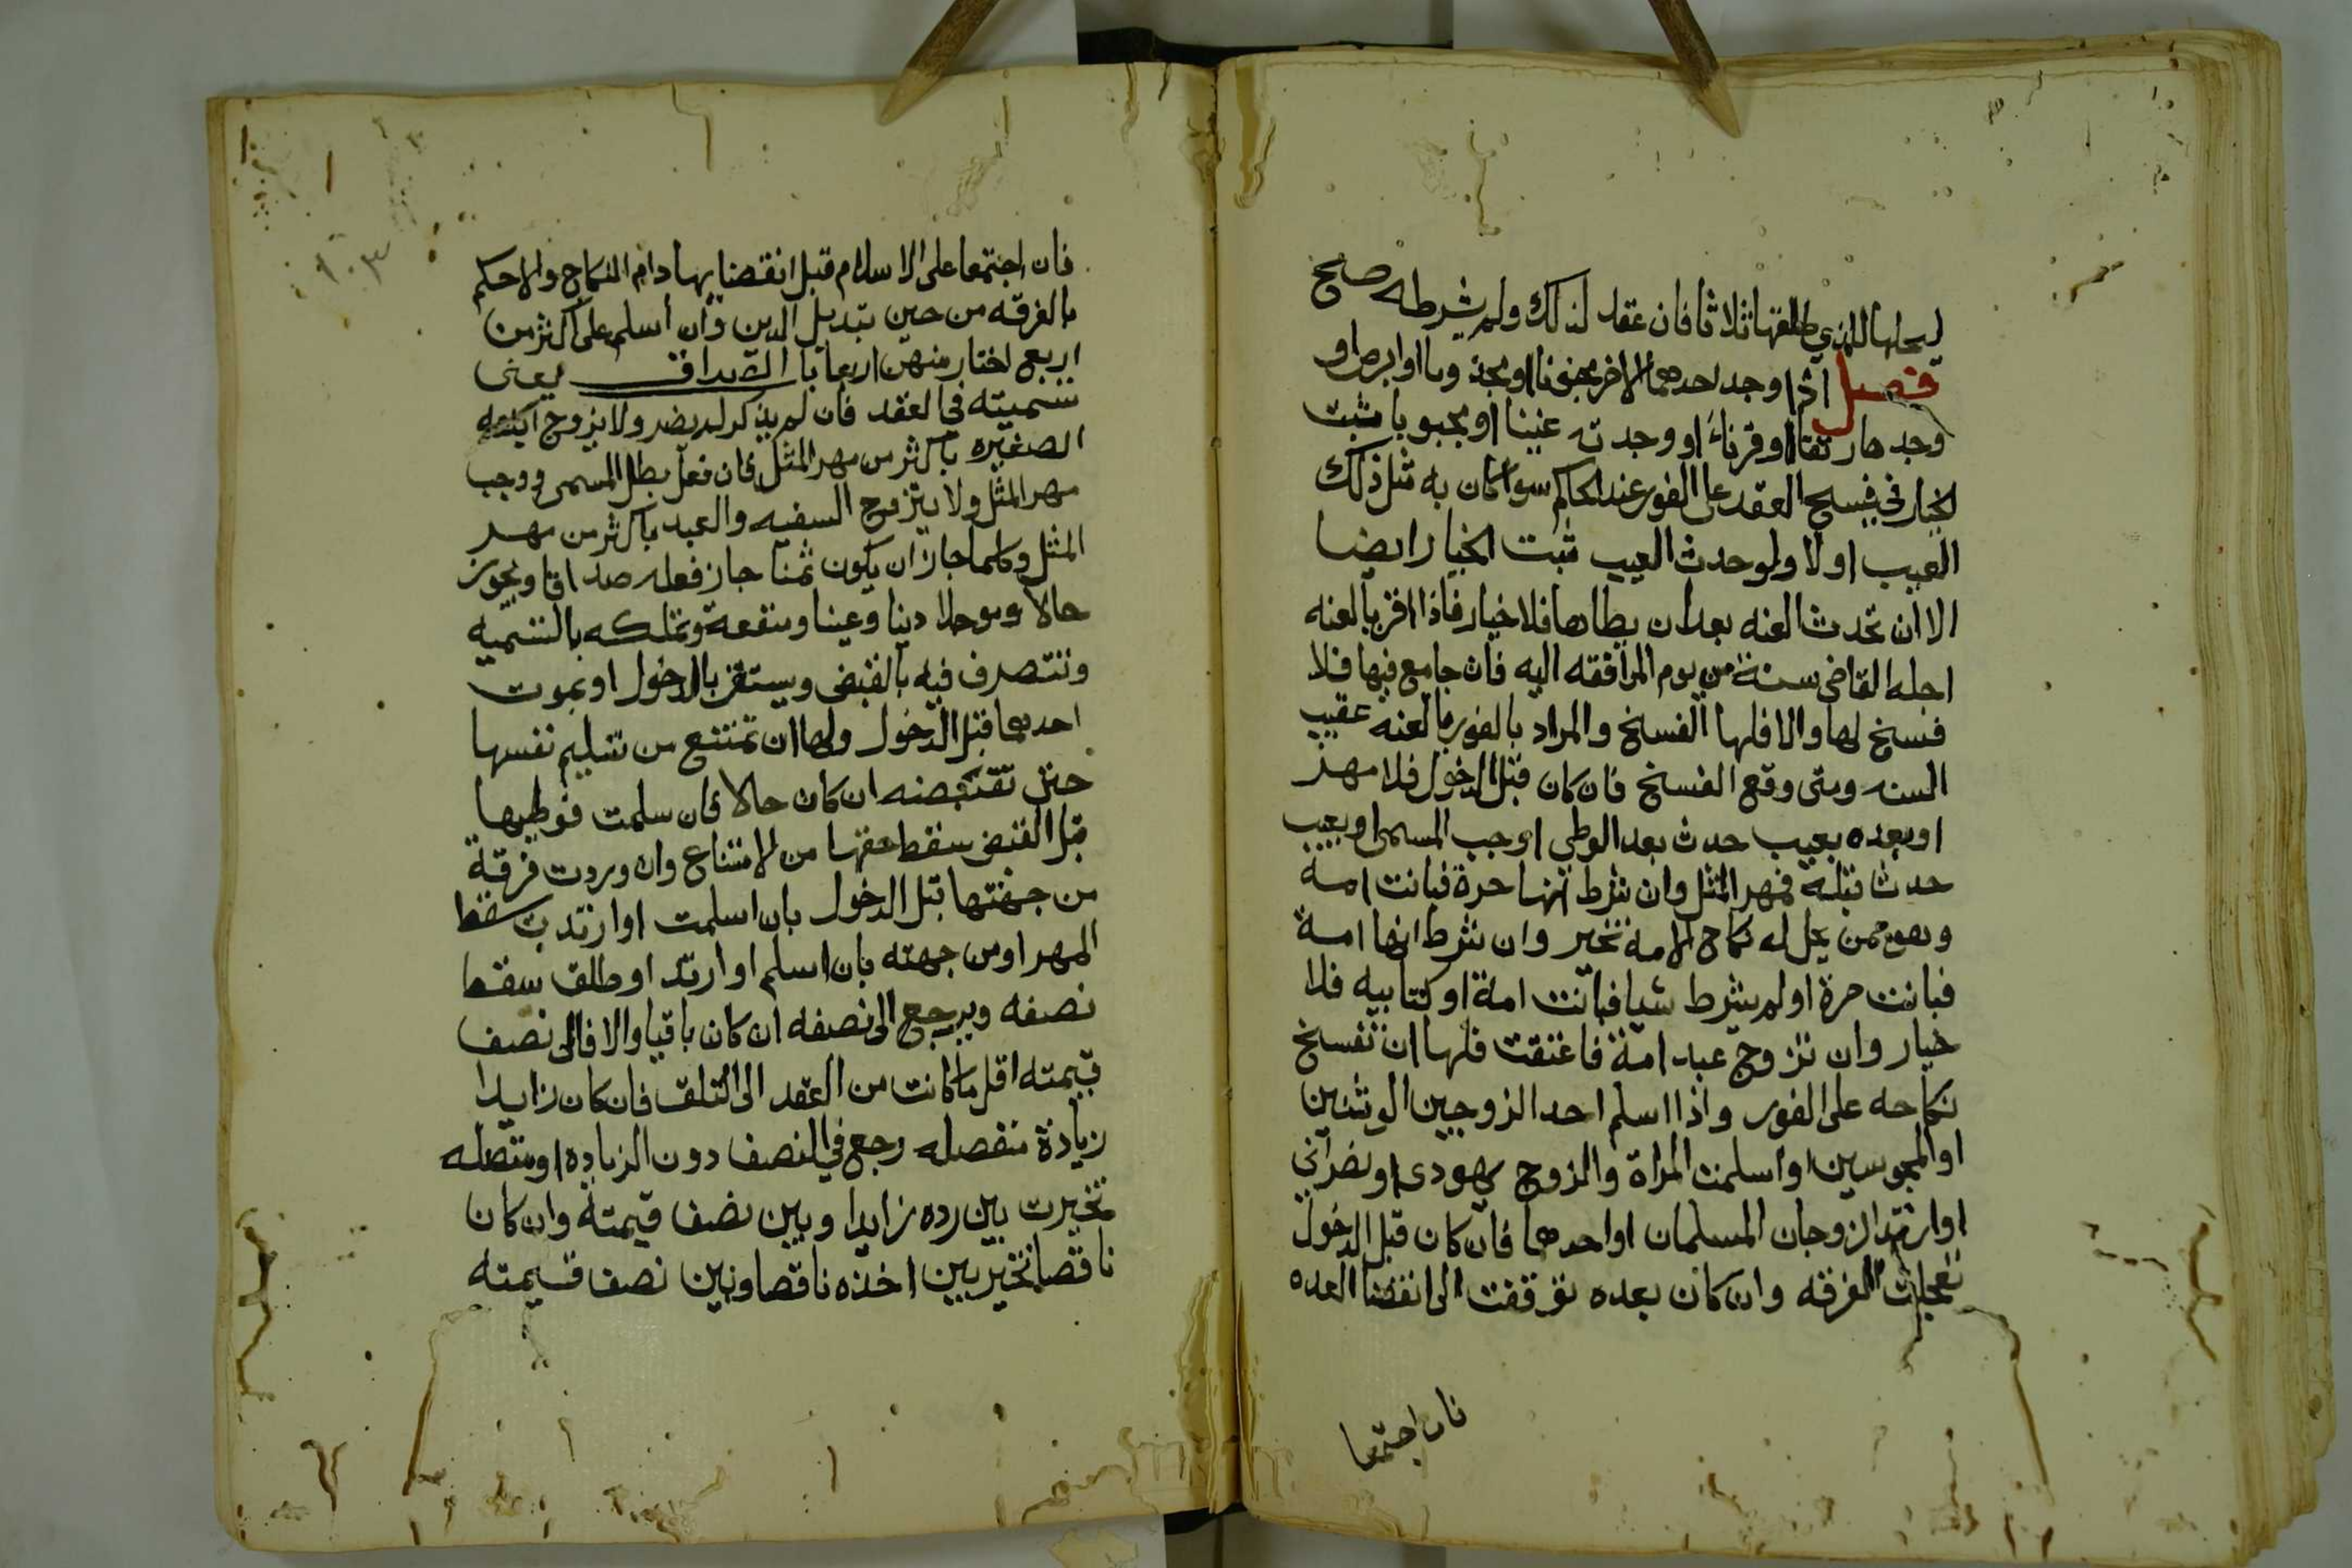 ليحلها للذي طلقها ثلاثا فان عقد لذلك ولم يشرطه صح
فصل اذا وجد احدهما الاخر مجنونا او مجذوما او ابرص او
وجدها رتقا او قرناء او وجدته عنينا او مجبوبا ثبت
الخيار في فسخ العقد على الفور عند الحاكم سوا كان به مثل ذلك
العيب او لا ولو حدث العيب ثبت الخيار ايضا
الا ان تحدث العنه بعد ان يطاها فلا خيار فاذا اقر بالعنه
اجله القاضي سنة من يوم المرافقه اليه فان جامع فيها فلا
فسخ لها والا فلها الفسخ والمراد بالفور بالعنه عقيب
السنه ومتى وقع الفسخ فان كان قبل الدخول فلا مهر
او بعده بعيب حدث بعد الوطي اوجب المسمى او بعيب
حدث قبله فمهر المثل وان شرط انها حرة فبانت امة
وهو ممن يحل له نكاح الامه تخير وان شرط انها امة
فبانت حرة او لم يشرط شيا فبانت امة او كتابيه فلا
خيار وان تزوج عبد امة فاعتقت فلها ان تفسخ
نكاحه على الفور واذا اسلم احد الزوجين الوثنين
او المجوسين او اسلمت المراة والزوج يهودى او نصراني
او ارتد الزوجان المسلمان او احدهما فان كان قبل الدخول
تعجلت الفرقه وان كان بعده توقفت الى انقضا العده
فان اجتمعا
فان اجتمعا على الاسلام قبل انقضايها دام النكاح والا حكم
بالفرقه من حين تبديل الدين وان أسلم على اكثر من
اربع اختار منهن اربعا باب الصداق يعنى
تسميته في العقد فان لم يذكر لم يضر ولا يزوج ابنته
الصغيره باكثر من مهر المثل فان فعل بطل المسمى ووجب
مهر المثل ولا يتزوج السفيه والعبد باكثر من مهر
المثل وكلما جاز ان يكون ثمنا جاز فعله صداقا ويجوز
حالا وموجلا دينا وعينا ومنفعة وتملكه بالتسميه
وتتصرف فيه بالقبض ويستقر بالدخول او بموت
احدهما قبل الدخول ولها ان تمتنع من تسليم نفسها
حتى تقبضه ان كان حالا فان سلمت فوطيها
قبل القبض سقط حقها من الامتناع وان وردت فرقة
من جهتها قبل الدخول بان اسلمت او ارتدت سقط
المهر او من جهته بان اسلم او ارتد او طلق سقط
نصفه ويرجع الى نصفه ان كان باقيا والا فالى نصف
قيمته اقل ما كانت من العقد الى التلف فان كان زايدا
زيادة منفصله رجع في النصف دون الزياده او متصله
تخيرت بين رده زايدا وبين نصف قيمته وان كان
ناقصا تخير بين اخذه ناقصا وبين نصف قيمته